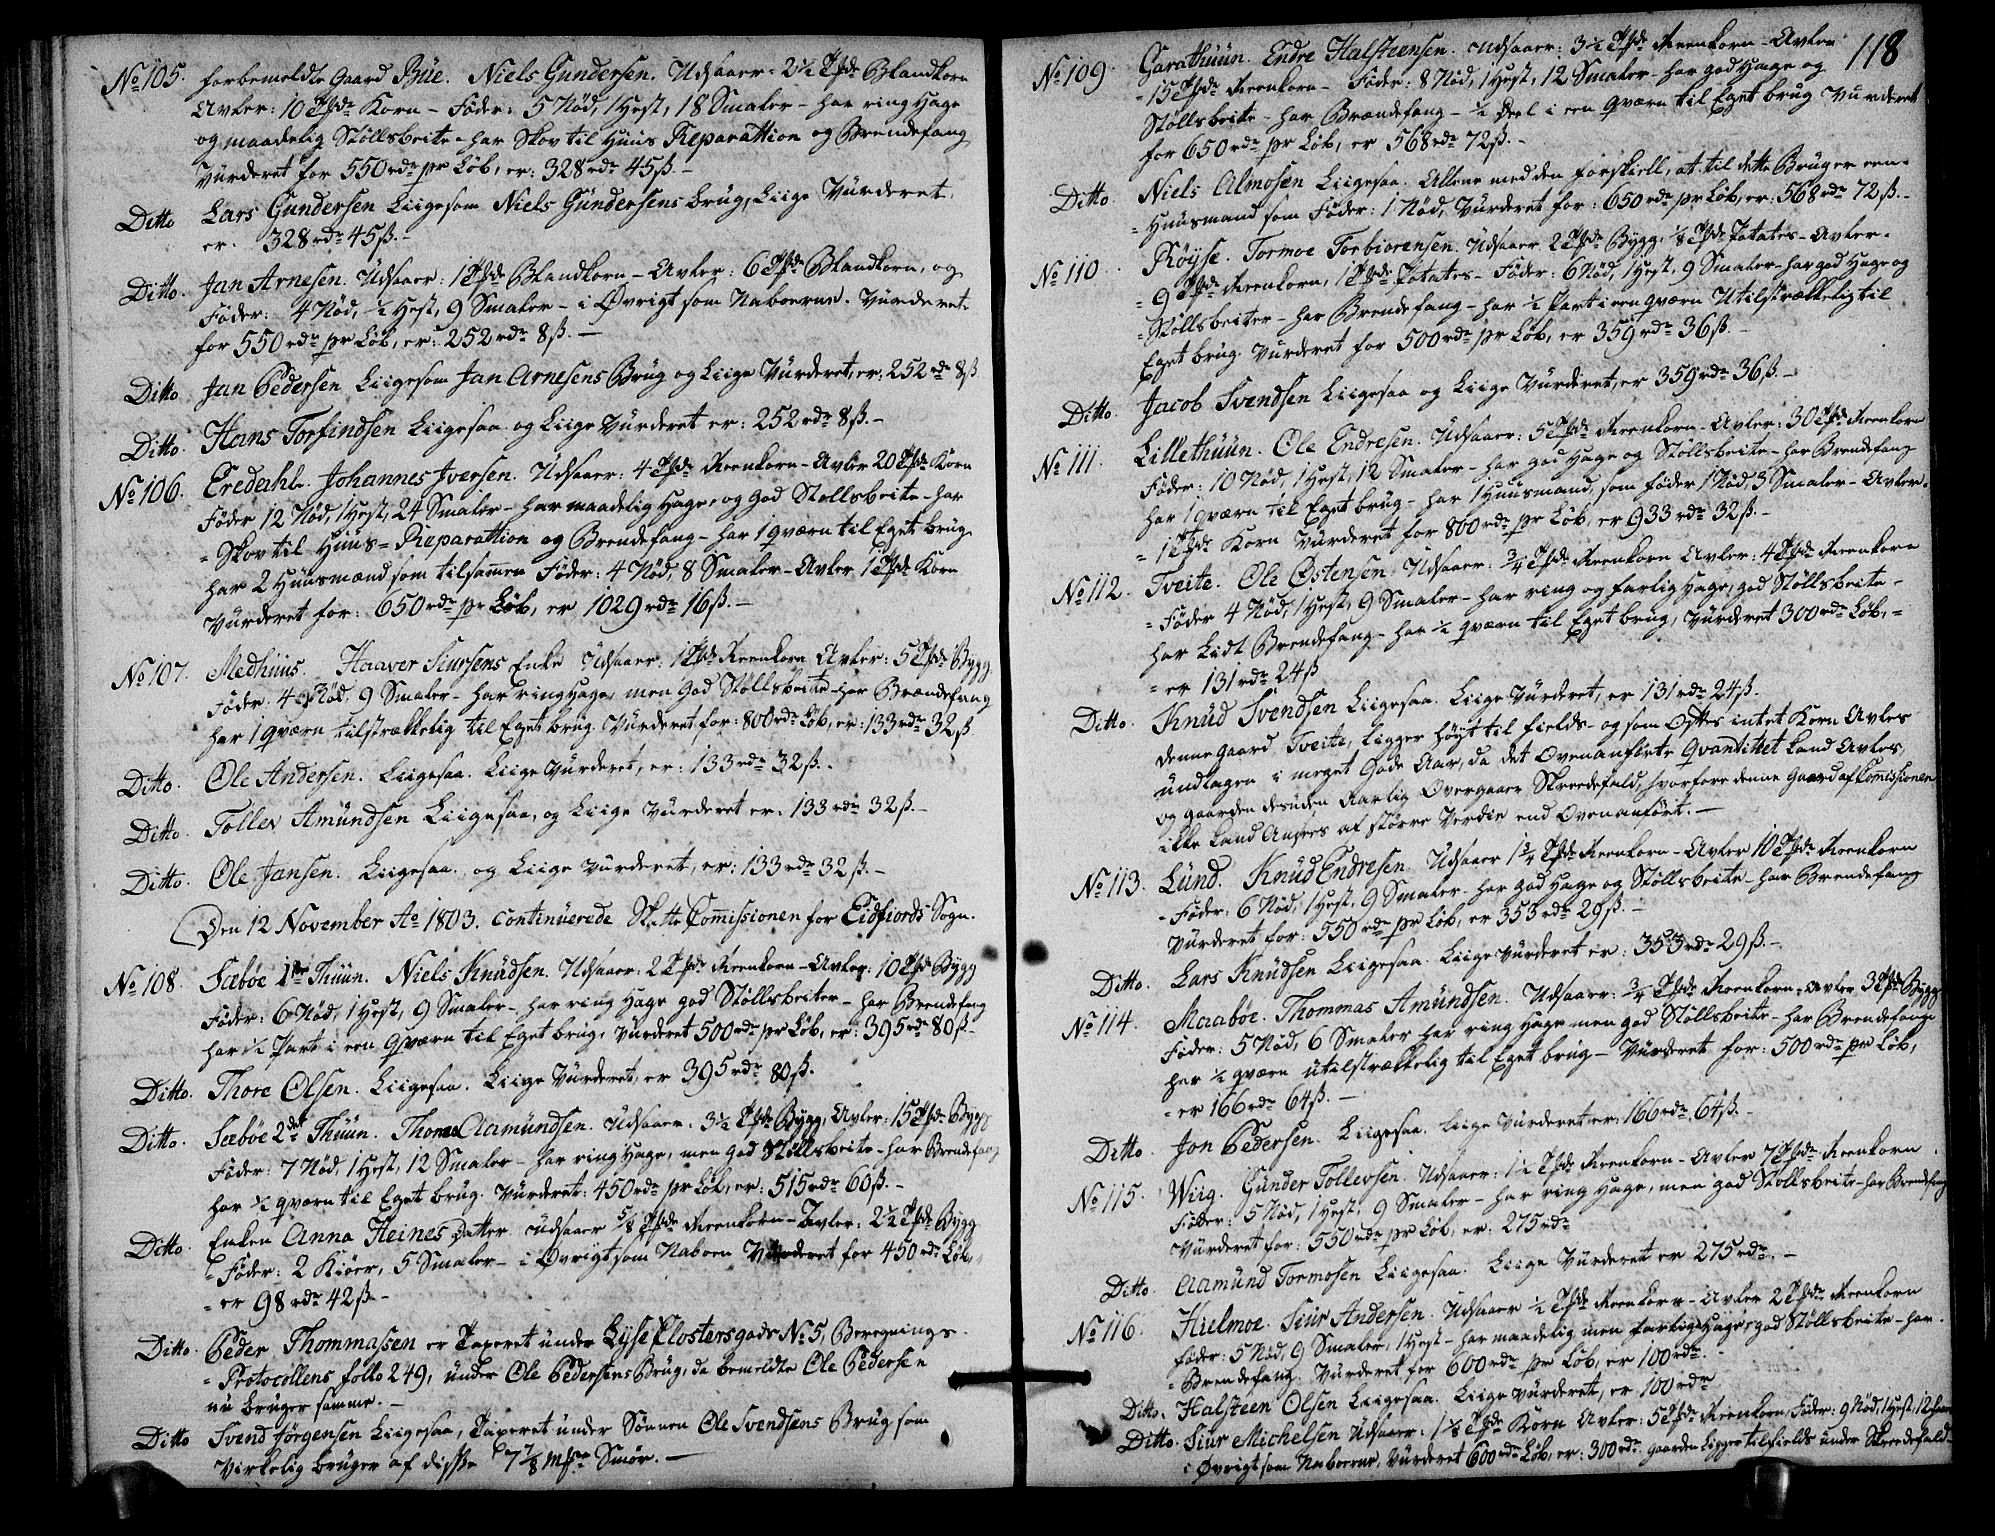 No 105. forbemeldte Gaard Büe. Niels Gundersen. Udsaaer: 2½ Tde Blandkorn
Avler: 10 Tde Korn – Føder: 5 Nød, 1 Hest, 18 Smaler – har ring Hage
og maadelig Støllsbeite – har Skov til Huus Reparattion og Brendefang
Vürderet for 550 rdr pr Løb, er: 328 rdr 45 ß. –
Ditto Lars Gundersen Liigesom Niels Gündersens brug, Liige Vürderet
er. 328 rdr 45 ß. –
Ditto. Jan Arnesen. Udsaaer: 1 Tde Blandkorn – Avler: 6 Tde Blandkorn, og
Føder: 4 Nød, ½ Hest, 9 Smaler – i Øvrigt som Naboerne. Vürderet
for 550 rdr pr Løb, er: 252 rdr 8 ß. –
Ditto. Jan Pedersen Liigesom Jan Arnesens Brüg og Liige Vürderet, er: 252 rdr 8 ß
Ditto. Hans Torfindsen Liigesaa og Liige Vürderet er: 252 rdr 8 ß. –
No 106. Eredahl. Johannes Iversen. Udsaaer: 4 Tde Reenkorn – Avler 20 Tde Korn
Føder 12 Nød, 1 Hest, 24 Smaler – har maadelig Hage, og god Støllsbeite – har
= Skov til Huus = Reparattion og Brendefang – har 1 qværn til Eget brüg
har 2 Huusmænd som tilsamen Føder: 4 Nød, 8 Smaler – Avler 1 Tde Korn
Vürderet for: 650 rdr pr Løb, er 1029 rdr 16 ß. –
No 107. Medhüüs. Haaver Siursens Enke Udsaaer: 1 Tde Reenkorn Avler: 5 Tde Bygg
Føder. 4 Nød, 9 Smaler – har ring Hage, men God Støllsbeite – har Brændefang
har 1 qværn tilstrækkelig til Eget brüg. Vürderet for: 800 rdr Løb, er: 133 rdr 32 ß
Ditto. Ole Andersen. Liigesaa. Liige Vürderet, er: 133 rdr 32 ß. –
Ditto. Tollev Amündsen Liigesaa, og Liige Vürderet er. 133 rdr 32 ß. –
Ditto. Ole Jansen. Liigesaa. og Liige Vürderet, er: 133 rdr 32 ß. –
Den 12 November Ao 1803. continuerede Skatte Comissionen for Eidfiords Sogn.
No 108. Sæbøe 1ste Thüün. Niels Knüdsen. Udsaaer: 2 Tde Reenkorn – Avler: 10 Tde Bygg
Føder: 6 Nød, 1 Hest, 9 Smaler – har ring Hage god Støllsbeiter – har Brendefang
har ½ Part i een qværn til Eget brüg, Vürderet 500 rdr pr Løb, er: 395 rdr 80 ß –
Ditto. Thore Olsen. Liigesaa. Liige Vürderet, er 395 rdr 80 ß.
Ditto. Sæbøe 2det Thüün. Thomas Aamündsen. Udsaaer. 3½ Tde Bygg, Avler: 15 Tde Bygg
Føder: 7 Nød, 1 Hest, 12 Smaler – har ring Hage, men god Støllsbeite – har Brendefang
har ½ qværn til Eget brüg. Vürderet: 450 rdr pr Løb, er: 515 rdr 60 ß. –
Ditto. Enken Anna Heines Datter. udsaaer 5/8 Tde Reenkorn – Avler: 2½ Tde Bygg
= Føder: 2 Kiøer, 5 Smaler – i Øvrigt som Naboen Vürderet for 450 rdr Løb,
= er 98 rdr 42 ß. –
Ditto. Peder Thommassen er Taxeret under Lyse Klostersgods No 5, Beregnings
= Protocollens folio 249, ünder Ole Pedersens Brüg, da bemeldte Ole Pedersen
nü bruger samme. –
Ditto Svend Jørgensen Liigesaa, Taxeret ünder Sønnen Ole Svendsens Brüg som
Virkelig brüger af disse 7 7/8 mrk Smør. –
118
No 109. Garathüün. Endre Halsteensen. Udsaaer: 3½ Tde Reenkorn – Avler
= 15 Tde Reenkorn – Føder: 8 Nød, 1 Hest, 12 Smaler – har god Hage og
Støllsbeite – har Brændefang – ½ Deel i een qværn til Eget brug Vürderet
for 650 rdr pr Løb, er 568 rdr 72 ß. –
Ditto Niels Almosen Liigesaa. Allene med den forskiell, at til dette Brug er een
= Huusmand som Føder: 1 Nød, Vürderet for: 650 rdr pr Løb, er: 568 rdr 72 ß. –
No 110. Röyse. Tormoe Torbiorensen. Udsaaer 2 Tde Bygg, 1/8 Tde Potates – Avler
= 9 Tde Reenkorn, 1 Tde Potates – Føder: 6 Nød, 1 Hest, 9 Smaler – har god Hage og
= Støllsbeiter – har Brendefang – har ½ Part i een qværn Utilstrækkelig til
Eget brüg. Vürderet for 500 rdr pr Løb, er 359 rdr 36 ß. –
Ditto. Jacob Svendsen Liigesaa og Liige Vürderet, er 359 rdr 36 ß. –
No 111. Lillethüün. Ole Endresen. Udsaaer: 5 Tde Reenkorn – Avler: 30 Tde Reenkorn
Føder: 10 Nød, 1 Hest, 12 Smaler – har god Hage og Støllsbeite – har Brendefang
har 1 qværn til Eget brüg – har 1 Huusmand, som føder 1 Nød, 3 Smaler – Avler
= 1 Tde Korn Vürderet for 800 rdr pr Løb, er 933 rdr 32 ß. –
No 112. Tveite. Ole Ostensen Udsaaer: ¾ Tde Reenkorn Avler: 4 Tde Reenkorn
= Føder 4 Nød, 1 Hest, 9 Smaler – har ring og farlig Hage, god Støllsbeite –
har Lidt Brendefang – har ½ qværn til Eget brüg, Vürderet 300 rdr Løb, =
= er 131 rdr 24 ß
Ditto. Knüd Svendsen Liigesaa. Liige Vürderet, er 131 rdr 24 ß.
Denne Gaard Tveite, ligger høyt til fields – og som Oftes intet Korn Avles
undtagen i meget Gode Aar, da det Ovenanførte Qvantitet kand Avles,
og Gaarden desuden Aarlig Overgaaer Skredefald, hvorfore denne Gaard af Comissionen
ikke kand Ansees af større Verdie end Ovenanført. –
No 113. Lünd. Knüd Endresen. Udsaaer 1¾ Tde Reenkorn – Avler 10 Tde Reenkorn
= Føder: 6 Nød, 1 Hest, 9 Smaler – har god Hage og Støllsbeite – har Brendefang
Vürderet for: 550 rdr pr Løb, er 353 rdr 29 ß. –
Ditto. Lars Knüdsen Liigesaa. Liige Vürderet er: 353 rdr 29 ß. –
No 114. Maabøe. Thommas Amündsen. Udsaaer: ¾ Tde Reenkorn – Avler 3 Tde Bygg
Føder: 5 Nød, 6 Smaler har ring Hage men god Støllsbeite – har Brendefang
har ½ qværn utilstrækkelig til Eget brüg – Vürderet for: 500 rdr pr Løb,
= er 166 rdr 64 ß. –
Ditto. Jon Pedersen. Liigesaa. Liige Vürderet er: 166 rdr 64 ß. –
No 115. Wiig. Günder Tollevsen. Udsaaer: 1¼ Tde Reenkorn – Avler 7 Tde Reenkorn
Føder: 5 Nød, 1 Hest, 9 Smaler – har ring Hage, men god Støllsbeite – har Brendefang
Vürderet for: 550 rdr pr Løb, er: 275 rdr
Ditto Aamünd Tormosen Liigesaa. Liige Vürderet er 275 rdr. –
No 116. Hielmoe. Siur Andersen. Udsaaer ½ Tde Reenkorn – Avler 2 Tde Reenkorn
Føder: 5 Nød, 9 Smaler, 1 Hest – har maadelig men farlig Hage, god Støllsbeite – har
= Brendefang. Vürderet for 600 rdr pr Løb, er 100 rdr. –
Ditto. Halsteen Olsen Liigesaa. Liige Vürderet, er 100 rdr
Ditto. Siur Michelsen Udsaaer: 1 1/8 Tde Korn Avler: 5 Tde Reenkorn, Føder: 9 Nød, 1 Hest, 12
i Øvrigt som Naboerne. Vürderet 600 rdr Løb, er: 300 rdr. Gaarden Ligger til fields under Skredefald.